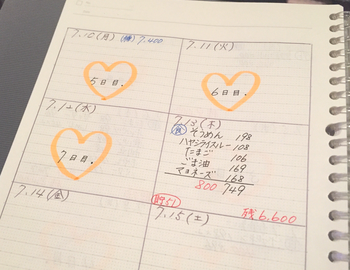 7.10(月) 7,400
5日目。
7.11(火)
6日目。
7.12(水)
7日目。
7.13(木)
食 そうめん 198
ハヤシライスルー 108
たまご 106
ごま油 169
マヨネーズ 168
800 749
残6,600
7.14(金)
7.15(土)